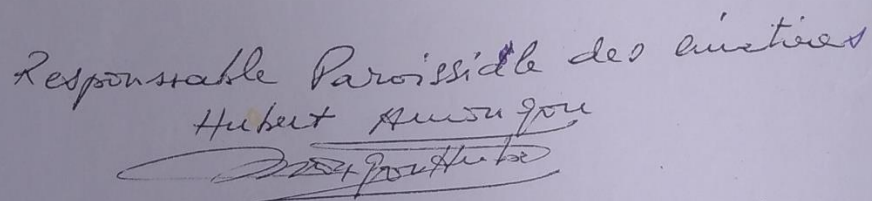 Responsable Paroissiale des cimetières
Hubert Amongou